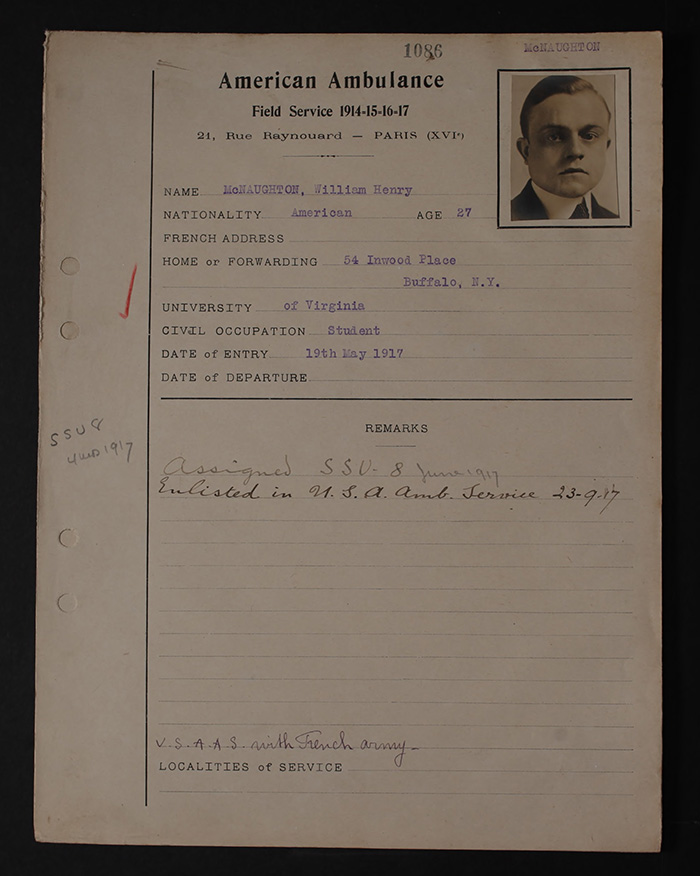 1086
McNAUGHTON
American Ambulance
Field Service 1914-15-16-17
21, Rue Raynouard — PARIS (XVIe)
NAME McNAUGHTON, William Henry
NATIONALITY American AGE 27
FRENCH ADDRESS
HOME or FORWARDING 54 Inwood Place
Buffalo, N.Y.
UNIVERSITY of Virginia
CIVIL OCCUPATION Student
DATE of ENTRY 19th May 1917
DATE of DEPARTURE
REMARKS
SSU 8
1917
Assigned SSU- 8 June 1917
Enlisted in U.S.A. Amb. Service 23-9-17
U.S.A.A.S. with French army
LOCALITIES of SERVICE